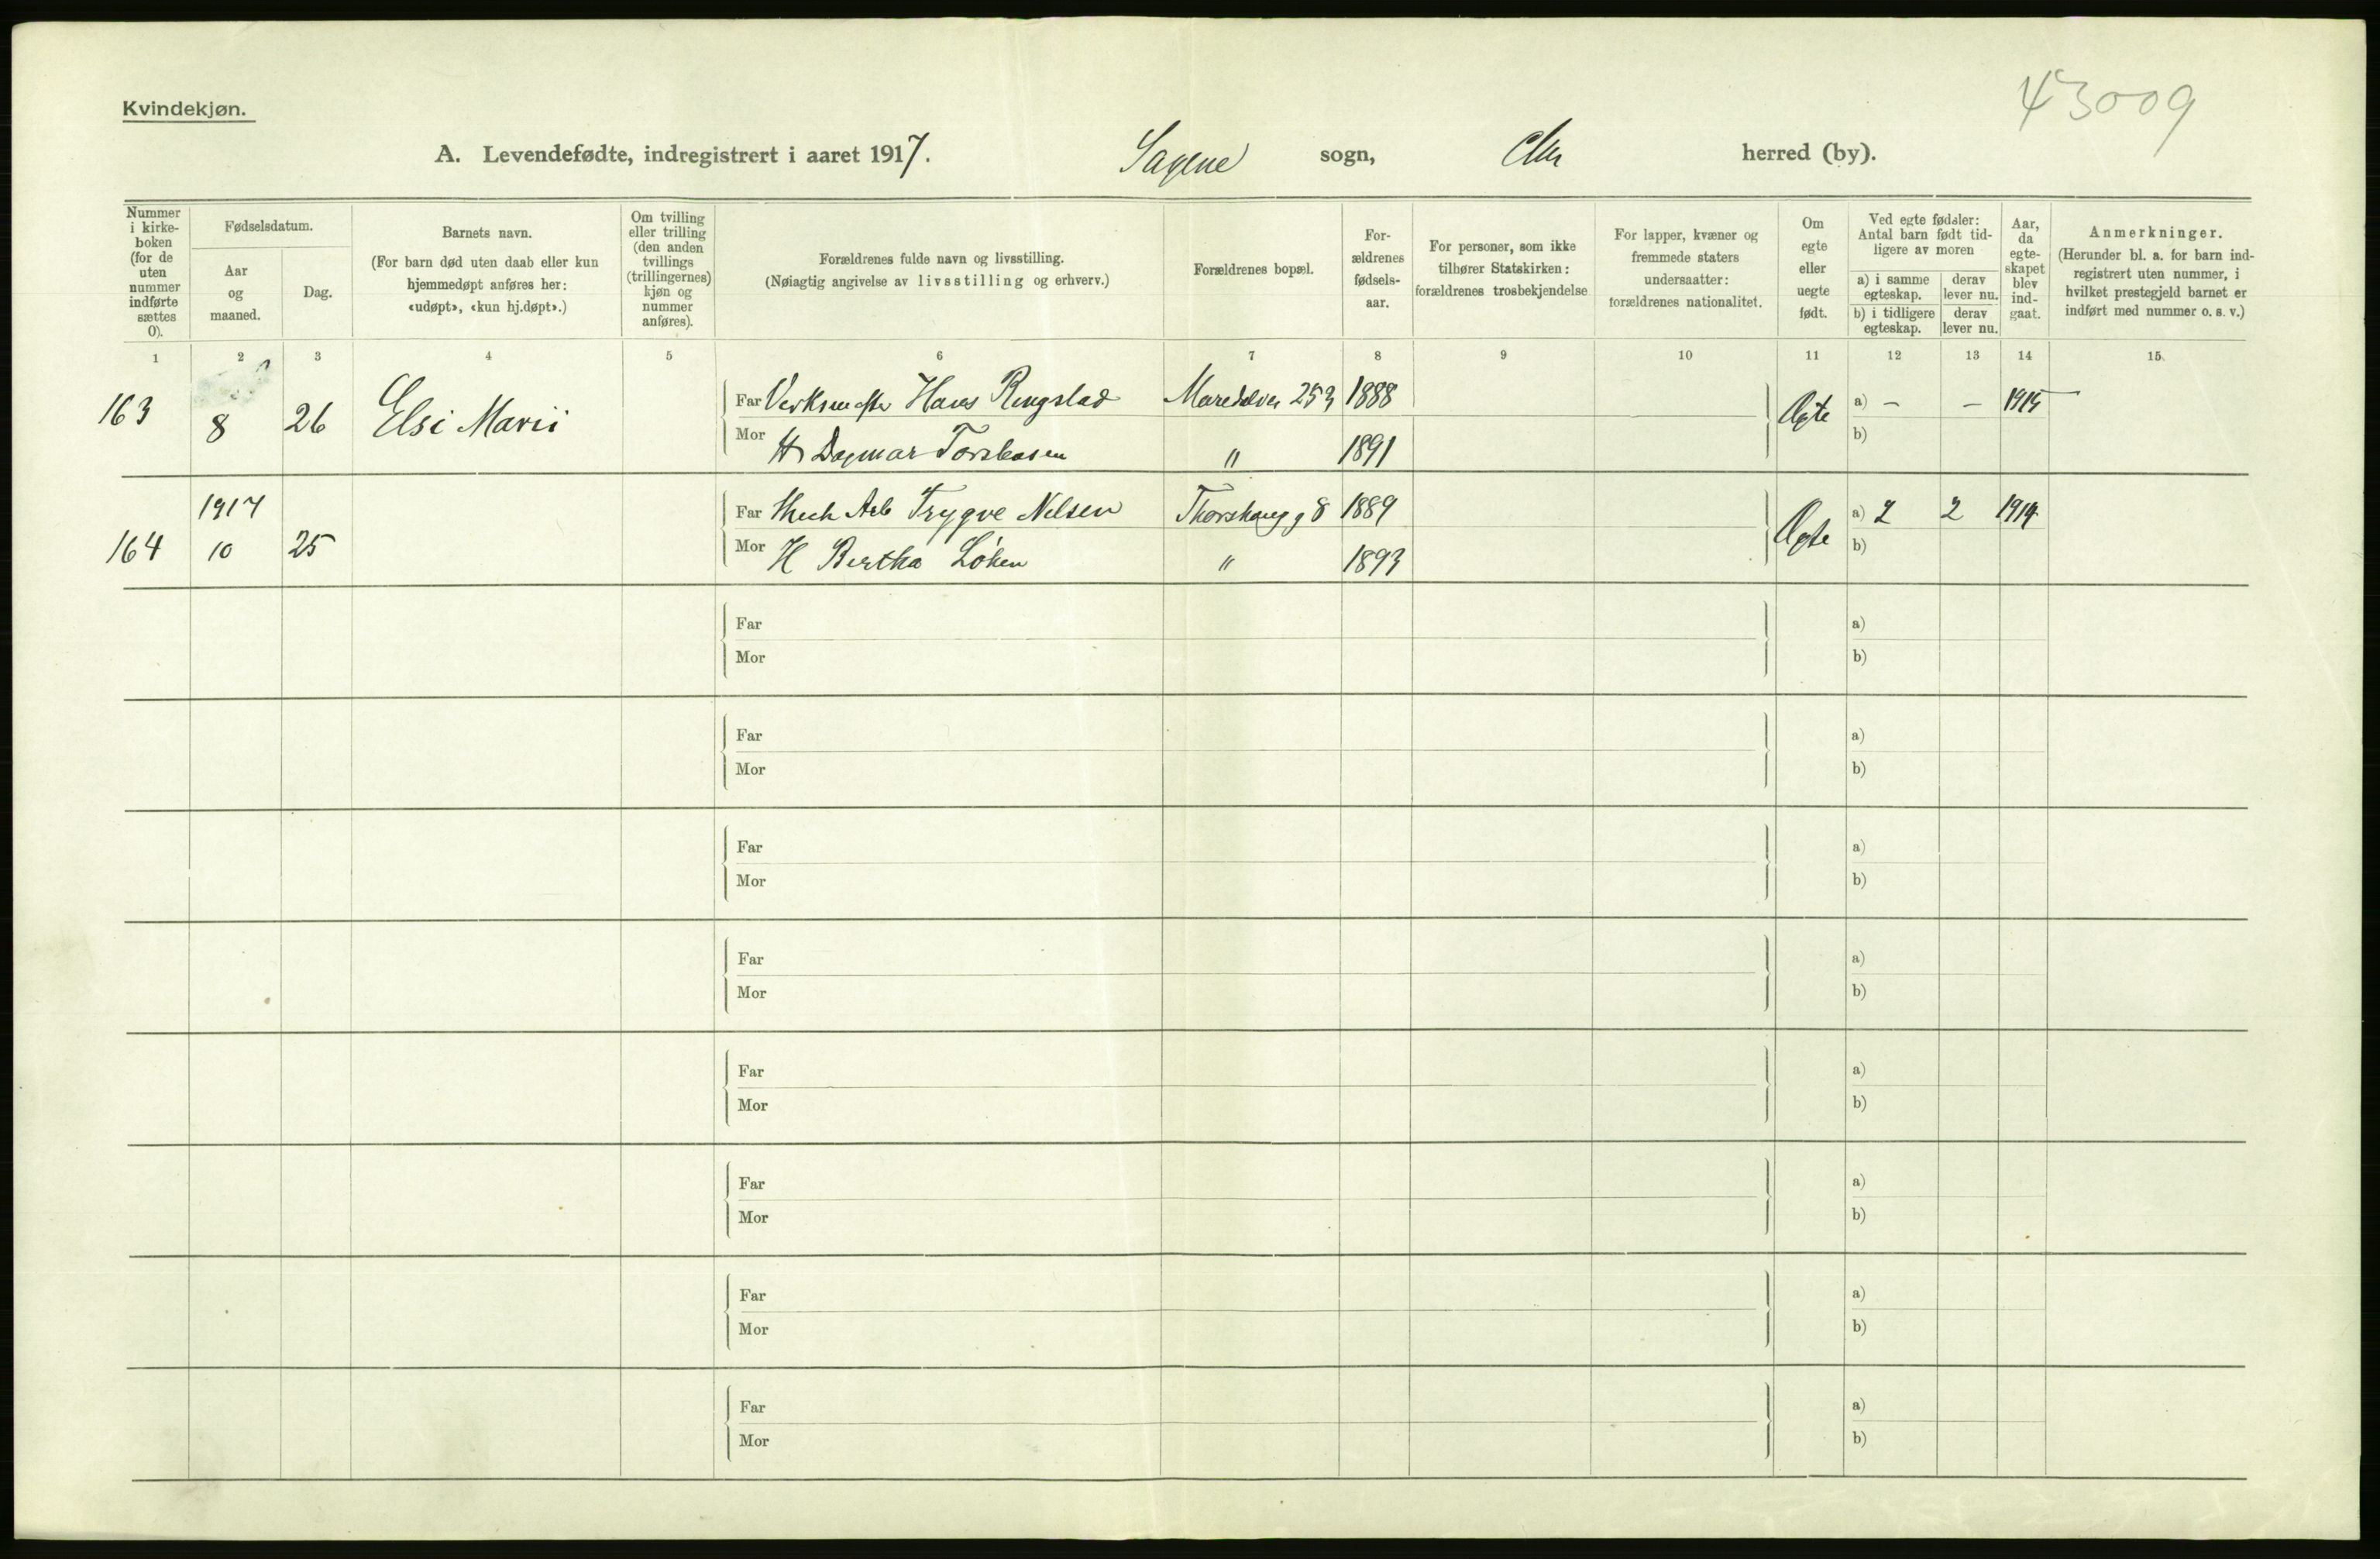 43009
Kvindekjøn.
A. Levendefødte, indregistrert i aaret 1917. Sagene sogn, Chr herred (by).
Nummer i kirkeboken (for de uten nummer indførte sættes 0).
Fødselsdatum.
Aar og maaned.
Dag.
Barnets navn.
(For barn død uten daab eller kun hjemmedøpt anføres her: «udøpt», «kun hj.døpt».)
Om tvilling eller trilling (den anden tvillings (trillingernes) kjøn og nummer anføres).
Forældrenes fulde navn og livsstilling.
(Nøiagtig angivelse av livsstilling og erhverv.)
Forældrenes bopæl.
Forældrenes fødselsaar.
For personer, som ikke tilhører Statskirken: forældrenes trosbekjendelse
For lapper, kvæner og fremmede staters undersaatter: forældrenes nationalitet.
Om egte eller uegte født.
Ved egte fødsler: Antal barn født tidligere av moren
a) i samme egteskap.
derav lever nu.
b) i tidligere egteskap.
derav lever nu.
Aar, da egteskapet blev indgaat.
Anmerkninger.
(Herunder bl. a. for barn indregistrert uten nummer, i hvilket prestegjeld barnet er indført med nummer o. s. v.)
1 2 3 4 5 6 7 8 9 10 11 12 13 14 15.
163 8 26 Elsi Marii Far Hans Ringstad 253 1888 Ægte a) – – 1915
Mor H Dagmar " 1891 b)
1917
164 10 25 Far Trygve Nilsen Thorshaug g 8 1889 Ægte a) 2 2 1914
Mor H Bertha Løken " 1893 b)
Far a)
Mor b)
Far a)
Mor b)
Far a)
Mor b)
Far a)
Mor b)
Far a)
Mor b)
Far a)
Mor b)
Far a)
Mor b)
Far a)
Mor b)